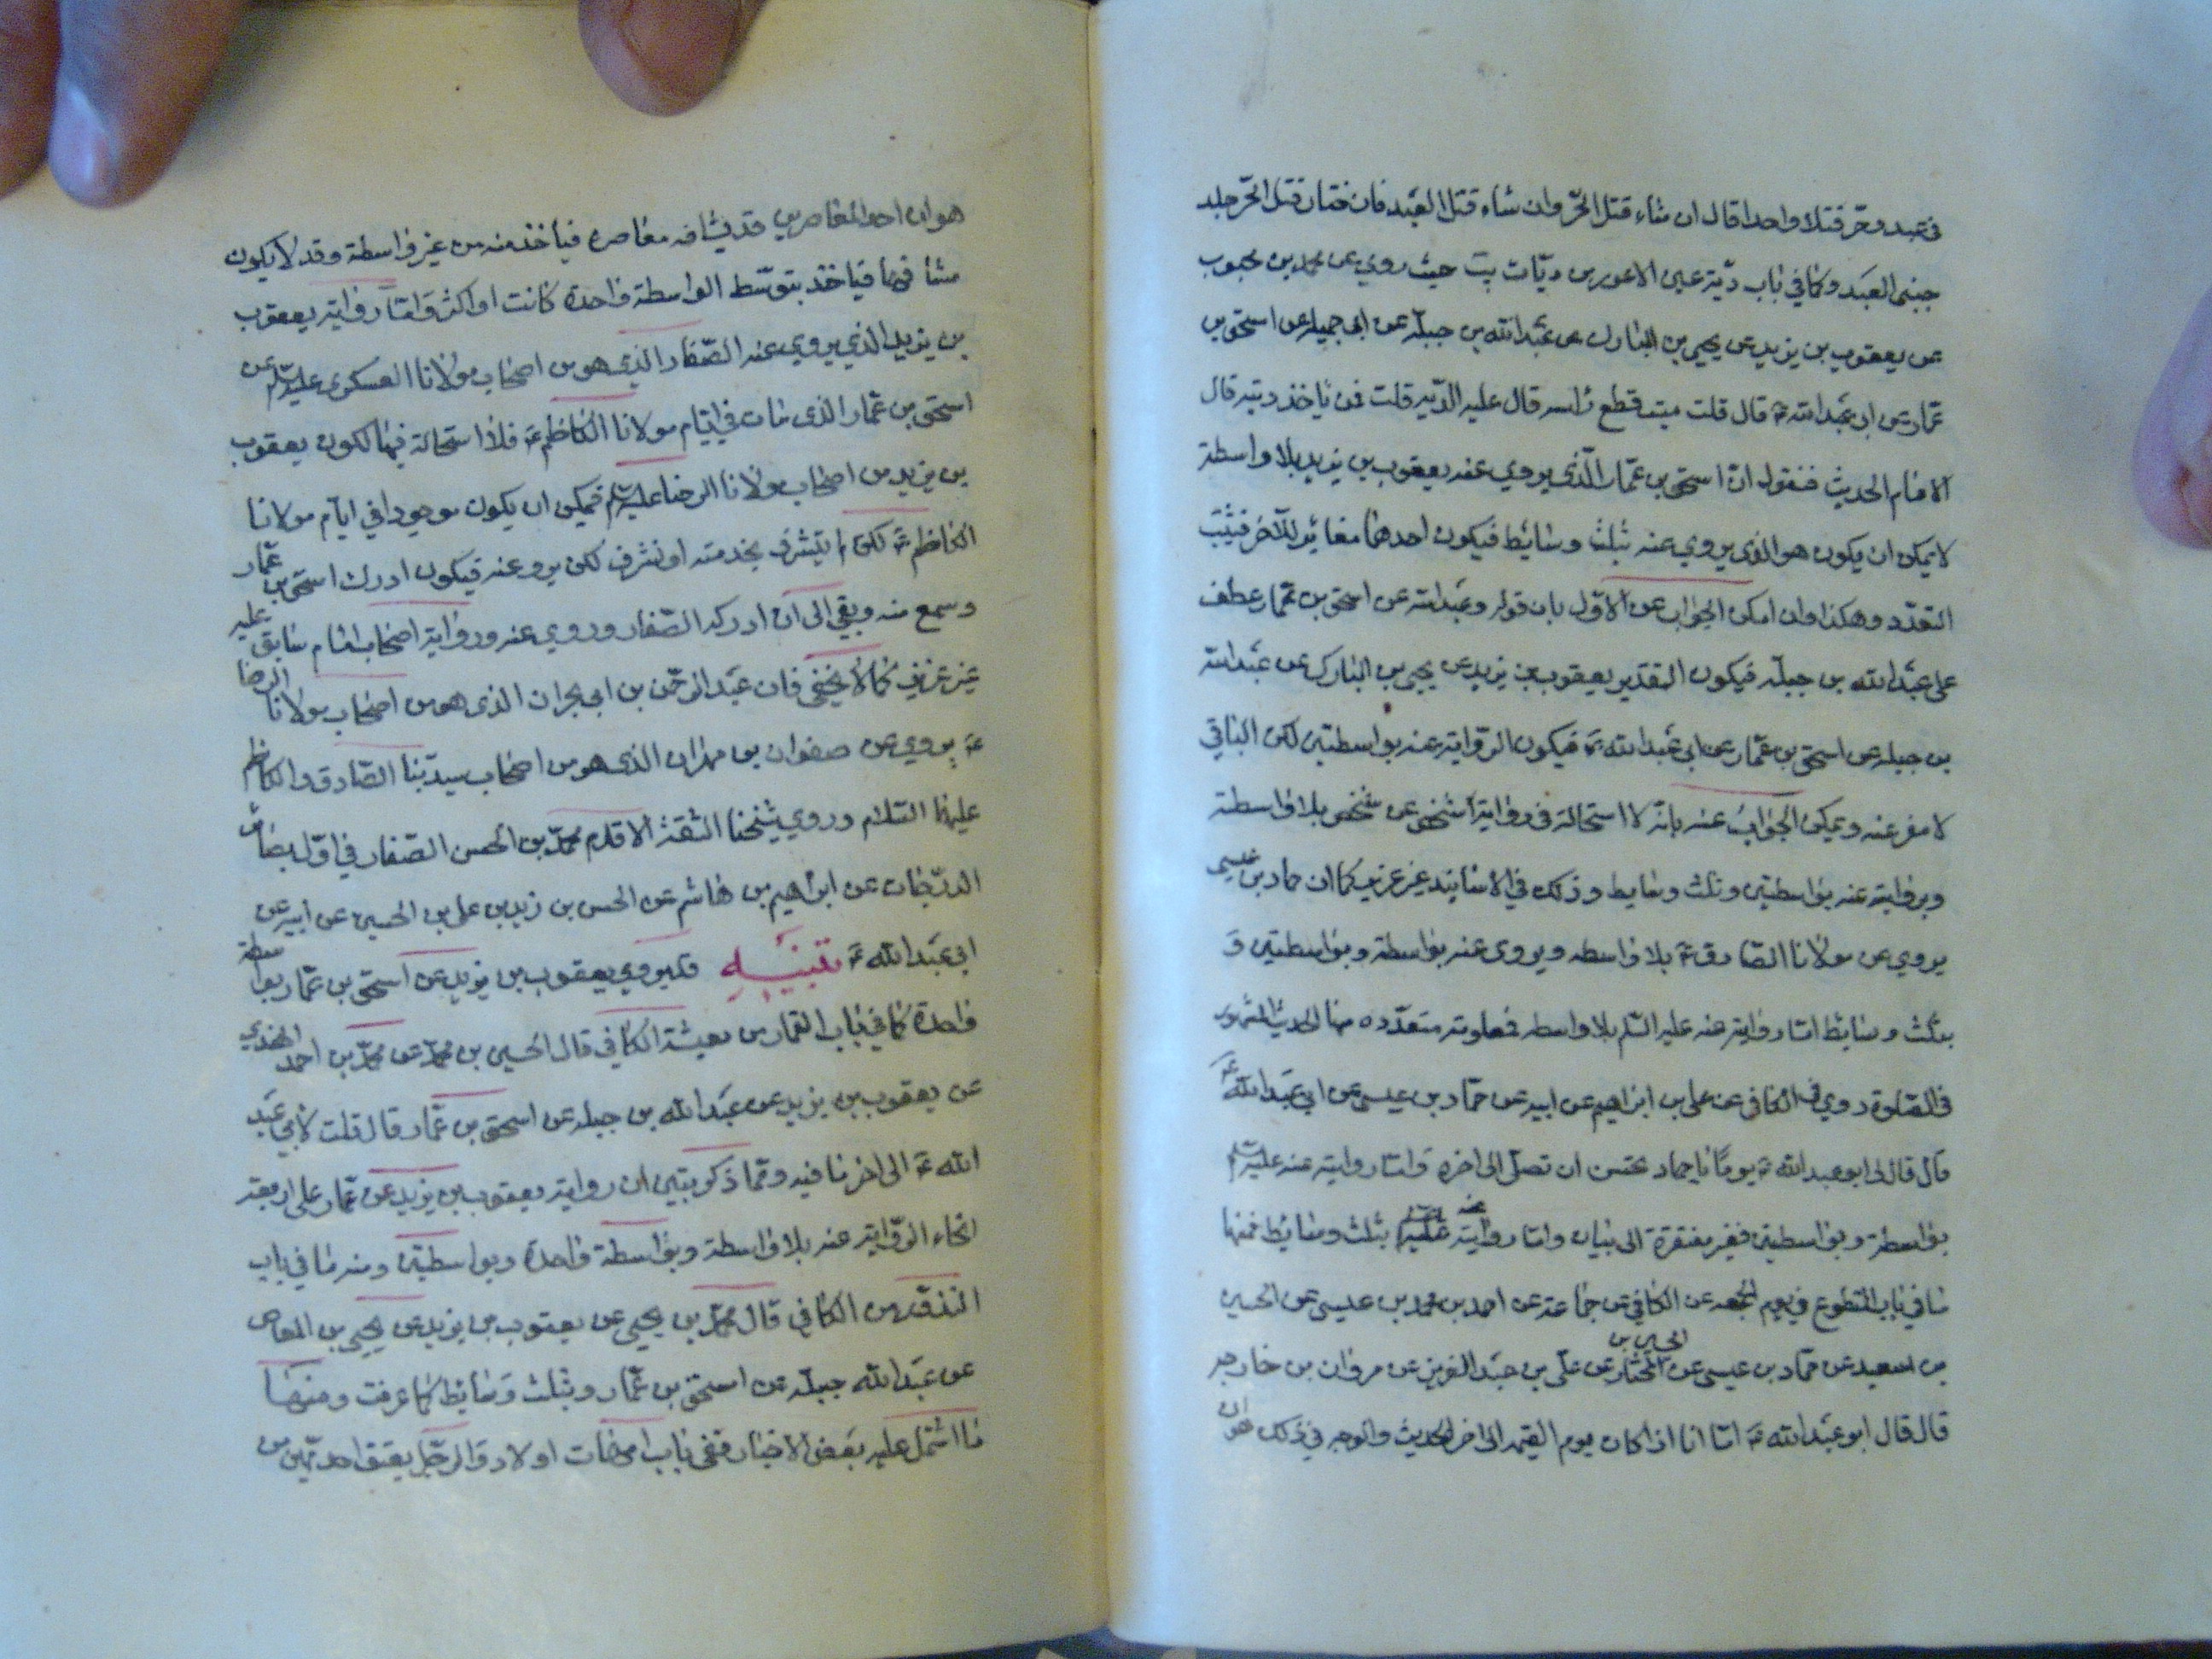 في عبد وحر قتلا واحدا قال ان شاء قتل الحر وان شاء قتل العبد فان ختار قتل الحر جلد
جنبى العبد وكما في باب دية عين الاعور من ديات يب حيث روي عن محمد بن محبوب
عن يعقوب بن يزيد عن يحيى بن المبارك عن عبد الله بن جبلة عن ابي جميلة عن اسحق بن
عمار عن ابي عبد الله ع قال قلت ميت قطع راسه قال عليه الدية قلت فمن ياخذ ديته قال
الامام الحديث فنقول ان اسحق بن عمار الذي يروي عنه يعقوب بن يزيد بلا واسطة
لا يمكن ان يكون هو الذي يروي عنه بثلث وسائط فيكون احدهما مغائر للاخر فيثبت
التعدد وهكذا وان امكن الجواب عن الاول بان قوله وعبد الله عن اسحق بن عمار عطف
على عبد الله بن جبلة فيكون التقدير يعقوب بن يزيد عن يحيى بن المبارك عن عبد الله
بن جبلة عن اسحق بن عمار عن ابي عبد الله ع فيكون الرواية عنه بواسطتين لكن الباقي
لا مفر عنه ويمكن الجواب عنه بانه لا استحالة في رواية شخص عن شخص بلا واسطة
وبروايته عنه بواسطتين وثلث وسايط وذلك في الاسانيد غير عزيز كما ان حماد بن عيسى
يروي عن مولانا الصادق ع بلا واسطه ويروى عنه بواسطة وبواسطتين و
بثلث وسائط اما روايته عنه عليه السلم بلا واسطه فمعلومة متعدده منها الحديث المشهور
في الصلوة روي في الكافي عن علي بن ابراهيم عن ابيه عن حماد بن عيسى عن ابي عبد الله ع
قال قال لي ابو عبد الله ع يوما يا حماد تحسن ان تصلى الى اخره واما روايته عنه عليه السلم
بواسطة وبواسطتين فغير مفتقرة الى بيان واما روايته عنه عليه السلم بثلث وسائط فمنها
ما في باب التطوع في يوم الجمعه من الكافي عن جماعة عن احمد بن محمد بن عيسى عن الحسين
بن سعيد عن حماد بن عيسى عن الحسين بن المختار عن علي بن عبد العزيز عن مروان بن خارجه
قال قال ابو عبد الله ع اما انا اذا كان يوم الجمعة الى اخر الحديث والوجه في ذلك هو ان
هو ان احد المعاصرين قد يشافه معاصره فياخذ منه من غير واسطة وقد لا يكون
مشافها فياخذ بتوسط الواسطة واحدة كانت او اكثر واما رواية يعقوب
بن يزيد الذي يروي عنه الصفار الذي هو من اصحاب مولانا العسكرى عليه السلم عن
اسحق بن عمار الذى مات في ايام مولانا الكاظم ع فلا استحالة فيها لكون يعقوب
بن يزيد من اصحاب مولانا الرضا عليه السلم فيمكن ان يكون موجودا في ايام مولانا
الكاظم ع لكن لم يتشرف بخدمته او تشرف لكن لم يرو عنه فيكون ادرك اسحق بن عمار
وسمع منه وبقي الى ان ادركه الصفار وروي عنه ورواية اصحاب امام سابق عليه
غير عزيز كما لا يخفى فان عبد الرحمن بن ابي نجران الذى هو من اصحاب مولانا الرضا
ع يروي عن صفوان بن مهران الذى هو من اصحاب سيدينا الصادق والكاظم
عليهما السلام وروي شيخنا الثقة الاقدم محمد بن الحسن الصفار في اول بصائر
الدرجات عن ابراهيم بن هاشم عن الحسن بن زيد بن علي بن الحسين عن ابيه عن
ابي عبد الله ع تنبيه قد يروي يعقوب بن يزيد عن اسحق بن عمار بواسطة
واحدة كما في باب القمار من معيشة الكافي قال الحسين بن محمد عن محمد بن احمد النهدي
عن يعقوب بن يزيد عن عبد الله بن جبلة عن اسحق بن عمار قال قلت لابي عبد
الله ع الى اخر ما فيه ومما ذكر تبين ان رواية يعقوب بن يزيد عن عمار على اربعة
انحاء الرواية عنه بلا واسطة وبواسطة واحدة وبواسطتين ومنه ما في باب
من الكافي قال محمد بن يحيى عن يعقوب بن يزيد عن يحيى بن
عن عبد الله جبلة عن اسحق بن عمار وبثلث وسائط كما عرفت ومنها
ما اشتمل عليه بعض الاخبار ففي باب امهات اولاد والرجل يعتق احديهن من